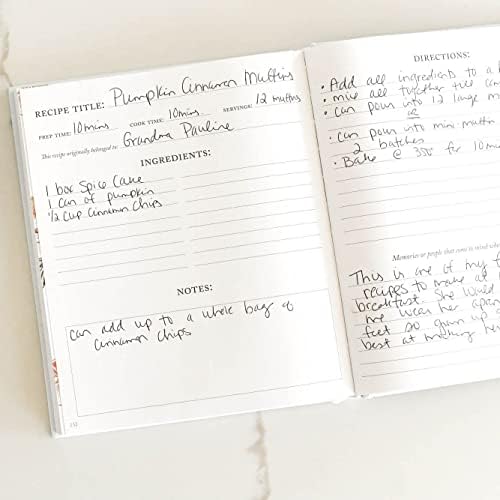 RECIPE TITLE: Pumpkin Cinnamon Muffins
PREP TIME: 10 mins COOK TIME: 10 mins SERVINGS: 12 muffins
This recipe originally belonged to: Grandma Pauline
INGREDIENTS:
1 box Spice Cake
1 can of pumpkin
1/2 cup cinnamon chips
NOTES:
can add up to a whole bag of
cinnamon chips
151
DIRECTIONS:
• Add all ingredients to a
• mix all together till
• Can pour into 12 large
or
• can pour into mini muffin
2 batches
• Bake @ 350 for 10
Memories or people that come to mind
This is one of my
recipes to make at
breakfast. She would
me wear her
feel so grown up
best at making her